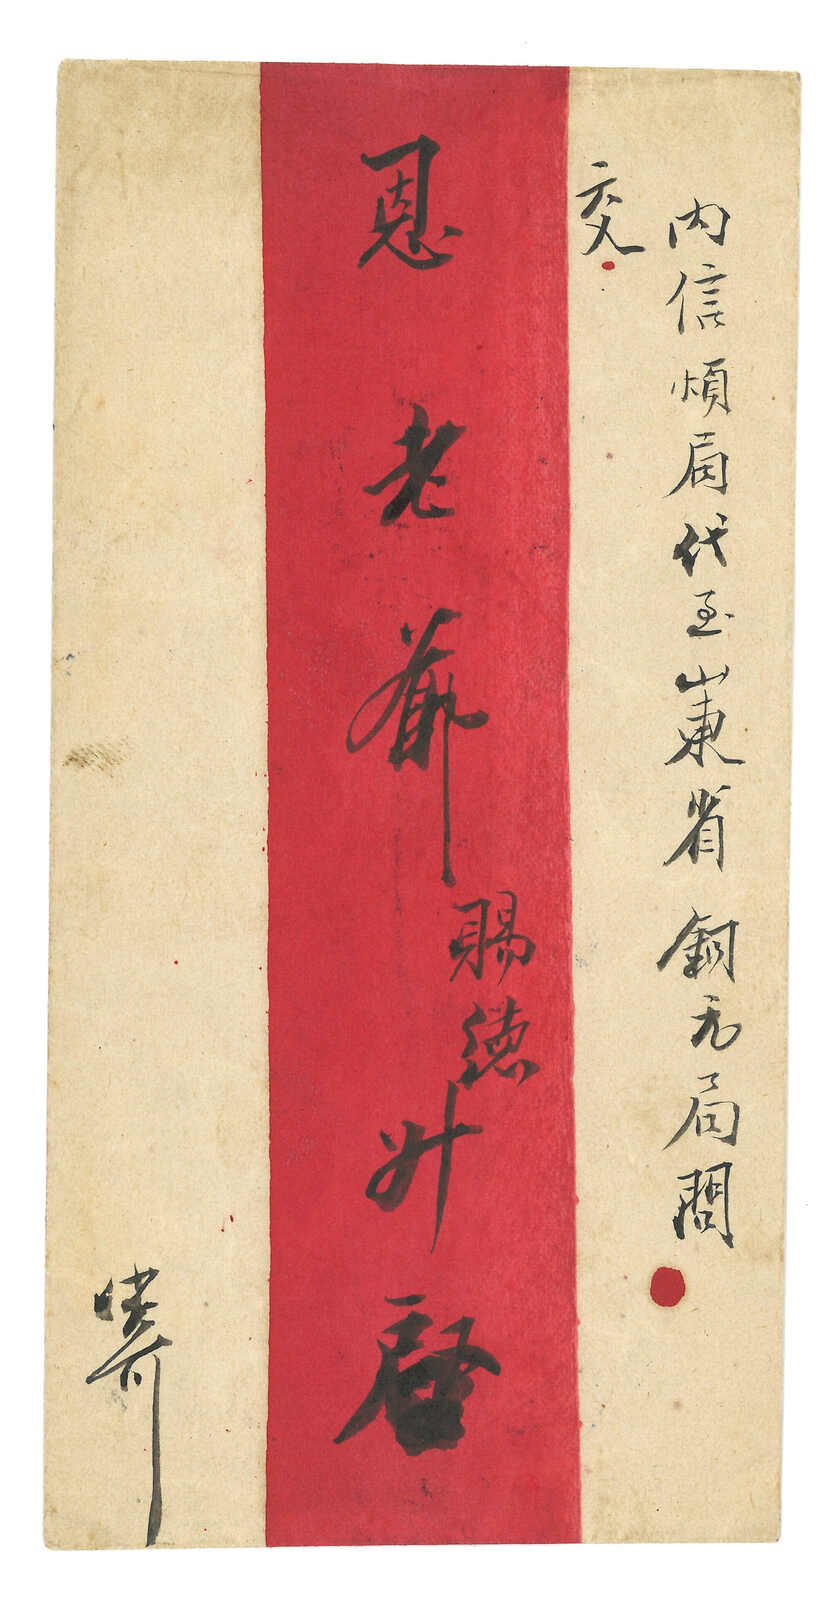 內信煩局代至山東省銅元局問
交
恩老爺
賜德
升啓